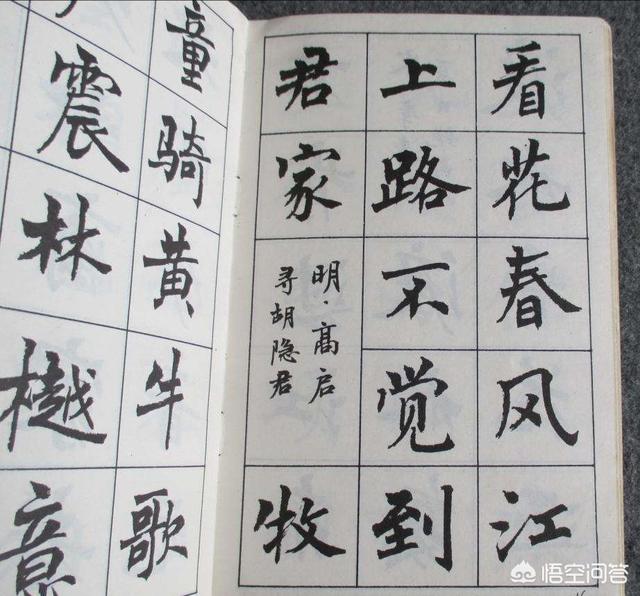 看花春风江
上路不觉到
君家
明·高启
寻胡隐君
牧
童骑黄牛歌
震林樾意
悟空问答